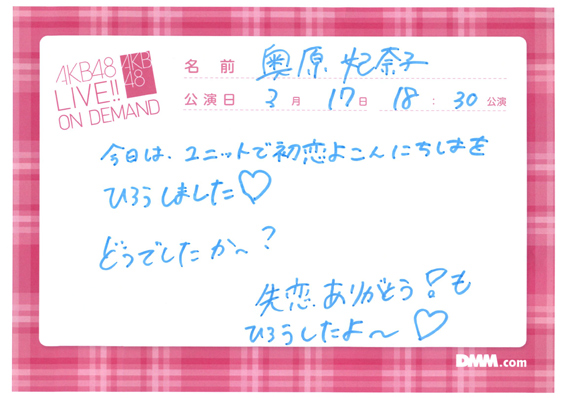 AKB48
LIVE!!
ON DEMAND
AKB
48
名前 奥原妃奈子
公演日 3月17日 18:30公演
今日は、ユニットで初恋よこんにちしまを
ひろうしました♡
どうでしたか〜?
失恋ありがとう!も
ひろうしたよ〜♡
DMM.com